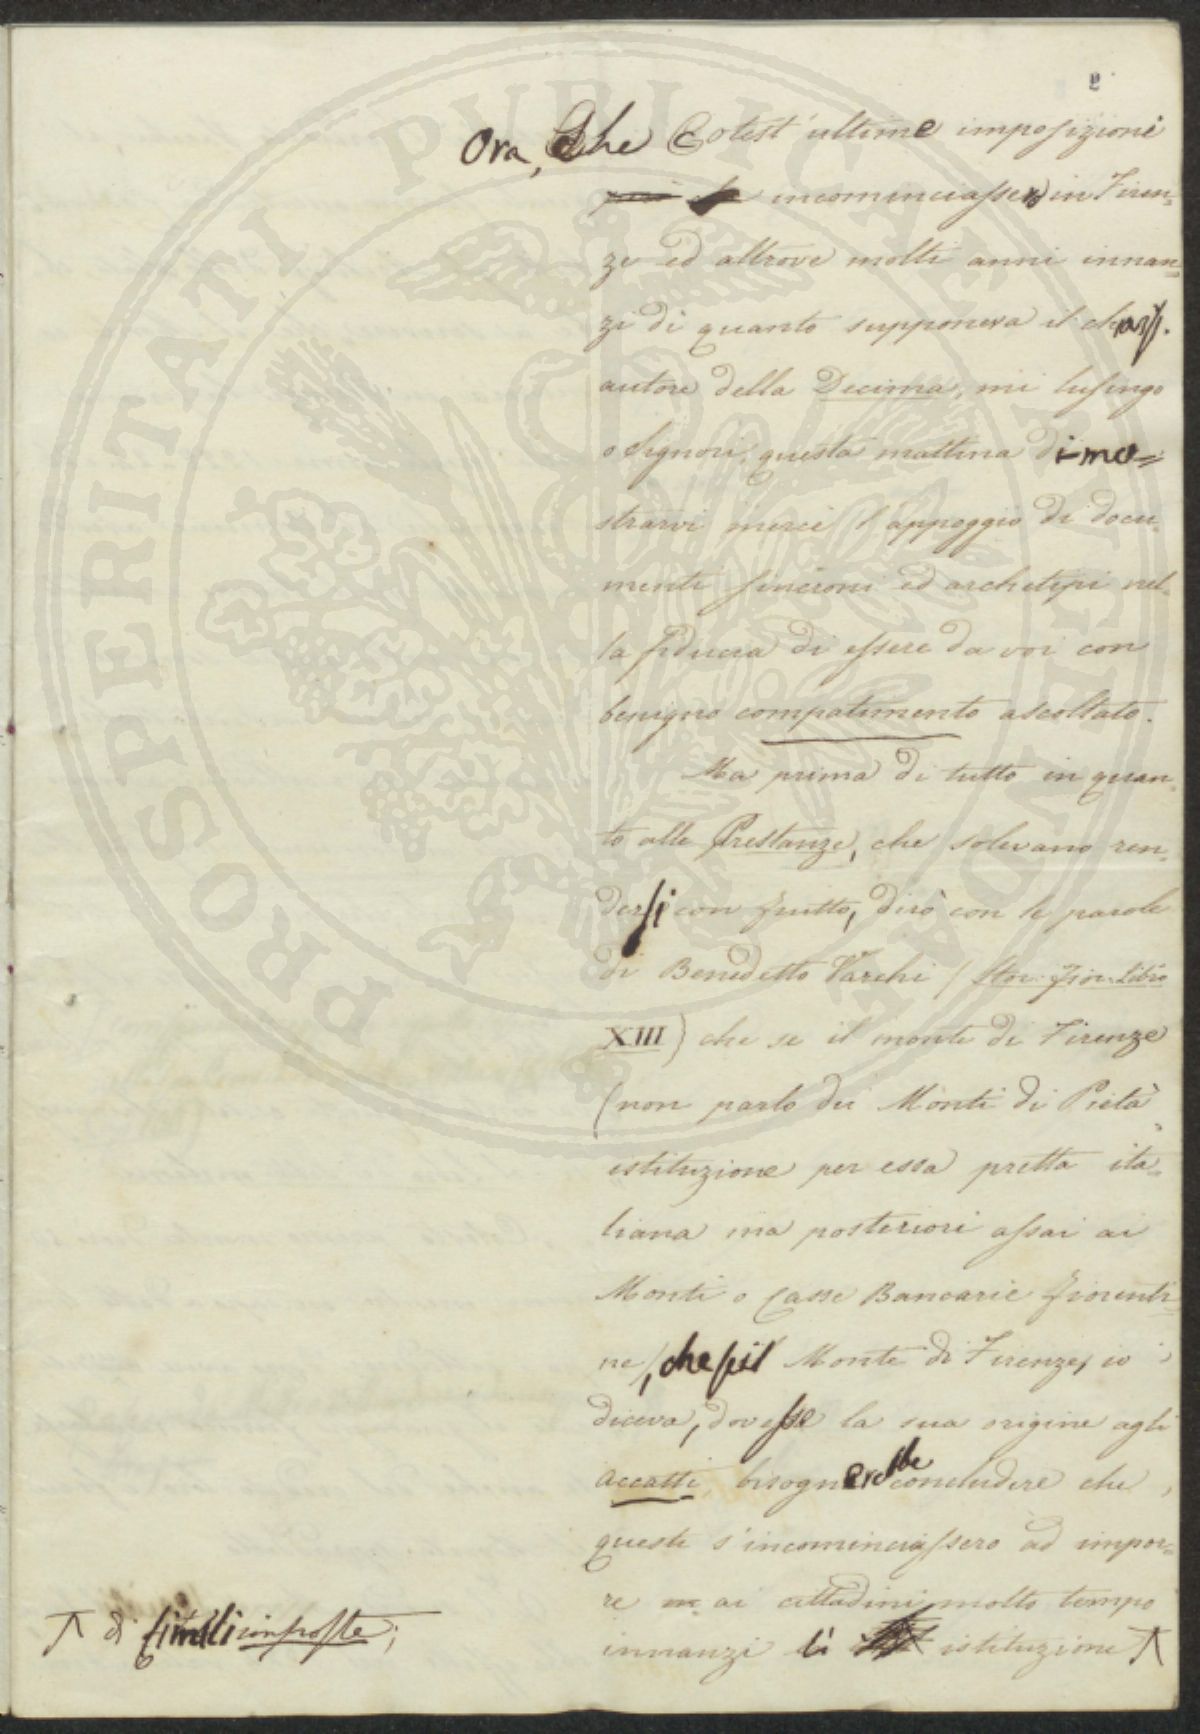 PROSPERITATI PUBLICAE AUGENDAE
9
Ora, Che Cotest'ultime imposizioni
incominciassero in Firen=
ze ed altrove molti anni innan=
zi di quanto supponeva il chiariss.
autore della Decima, mi lusingo
o Signori, questa mattina dimo=
strarvi mercè l'appoggio di docu=
menti sincroni ed archetipi nel=
la fiducia di essere da voi con
benigno compatimento ascoltato.
Ma prima di tutto in quan=
to alle Prestanze, che solevano ren=
dersi con frutto, dirò con le parole
di Benedetto Varchi (Stor. Fior. Libro
XIII) che se il monte di Firenze
(non parlo dei Monti di Pietà
istituzione per essa pretta ita=
liana ma posteriori assai ai
Monti o Casse Bancarie fiorenti=
ne), che se il Monte di Firenze, io
diceva, dovesse la sua origine agli
accatti, bisognerebbe concludere che
questi s'incominciassero ad impor=
re ai cittadini molto tempo
innanzi l' istituzione
di simili imposte;